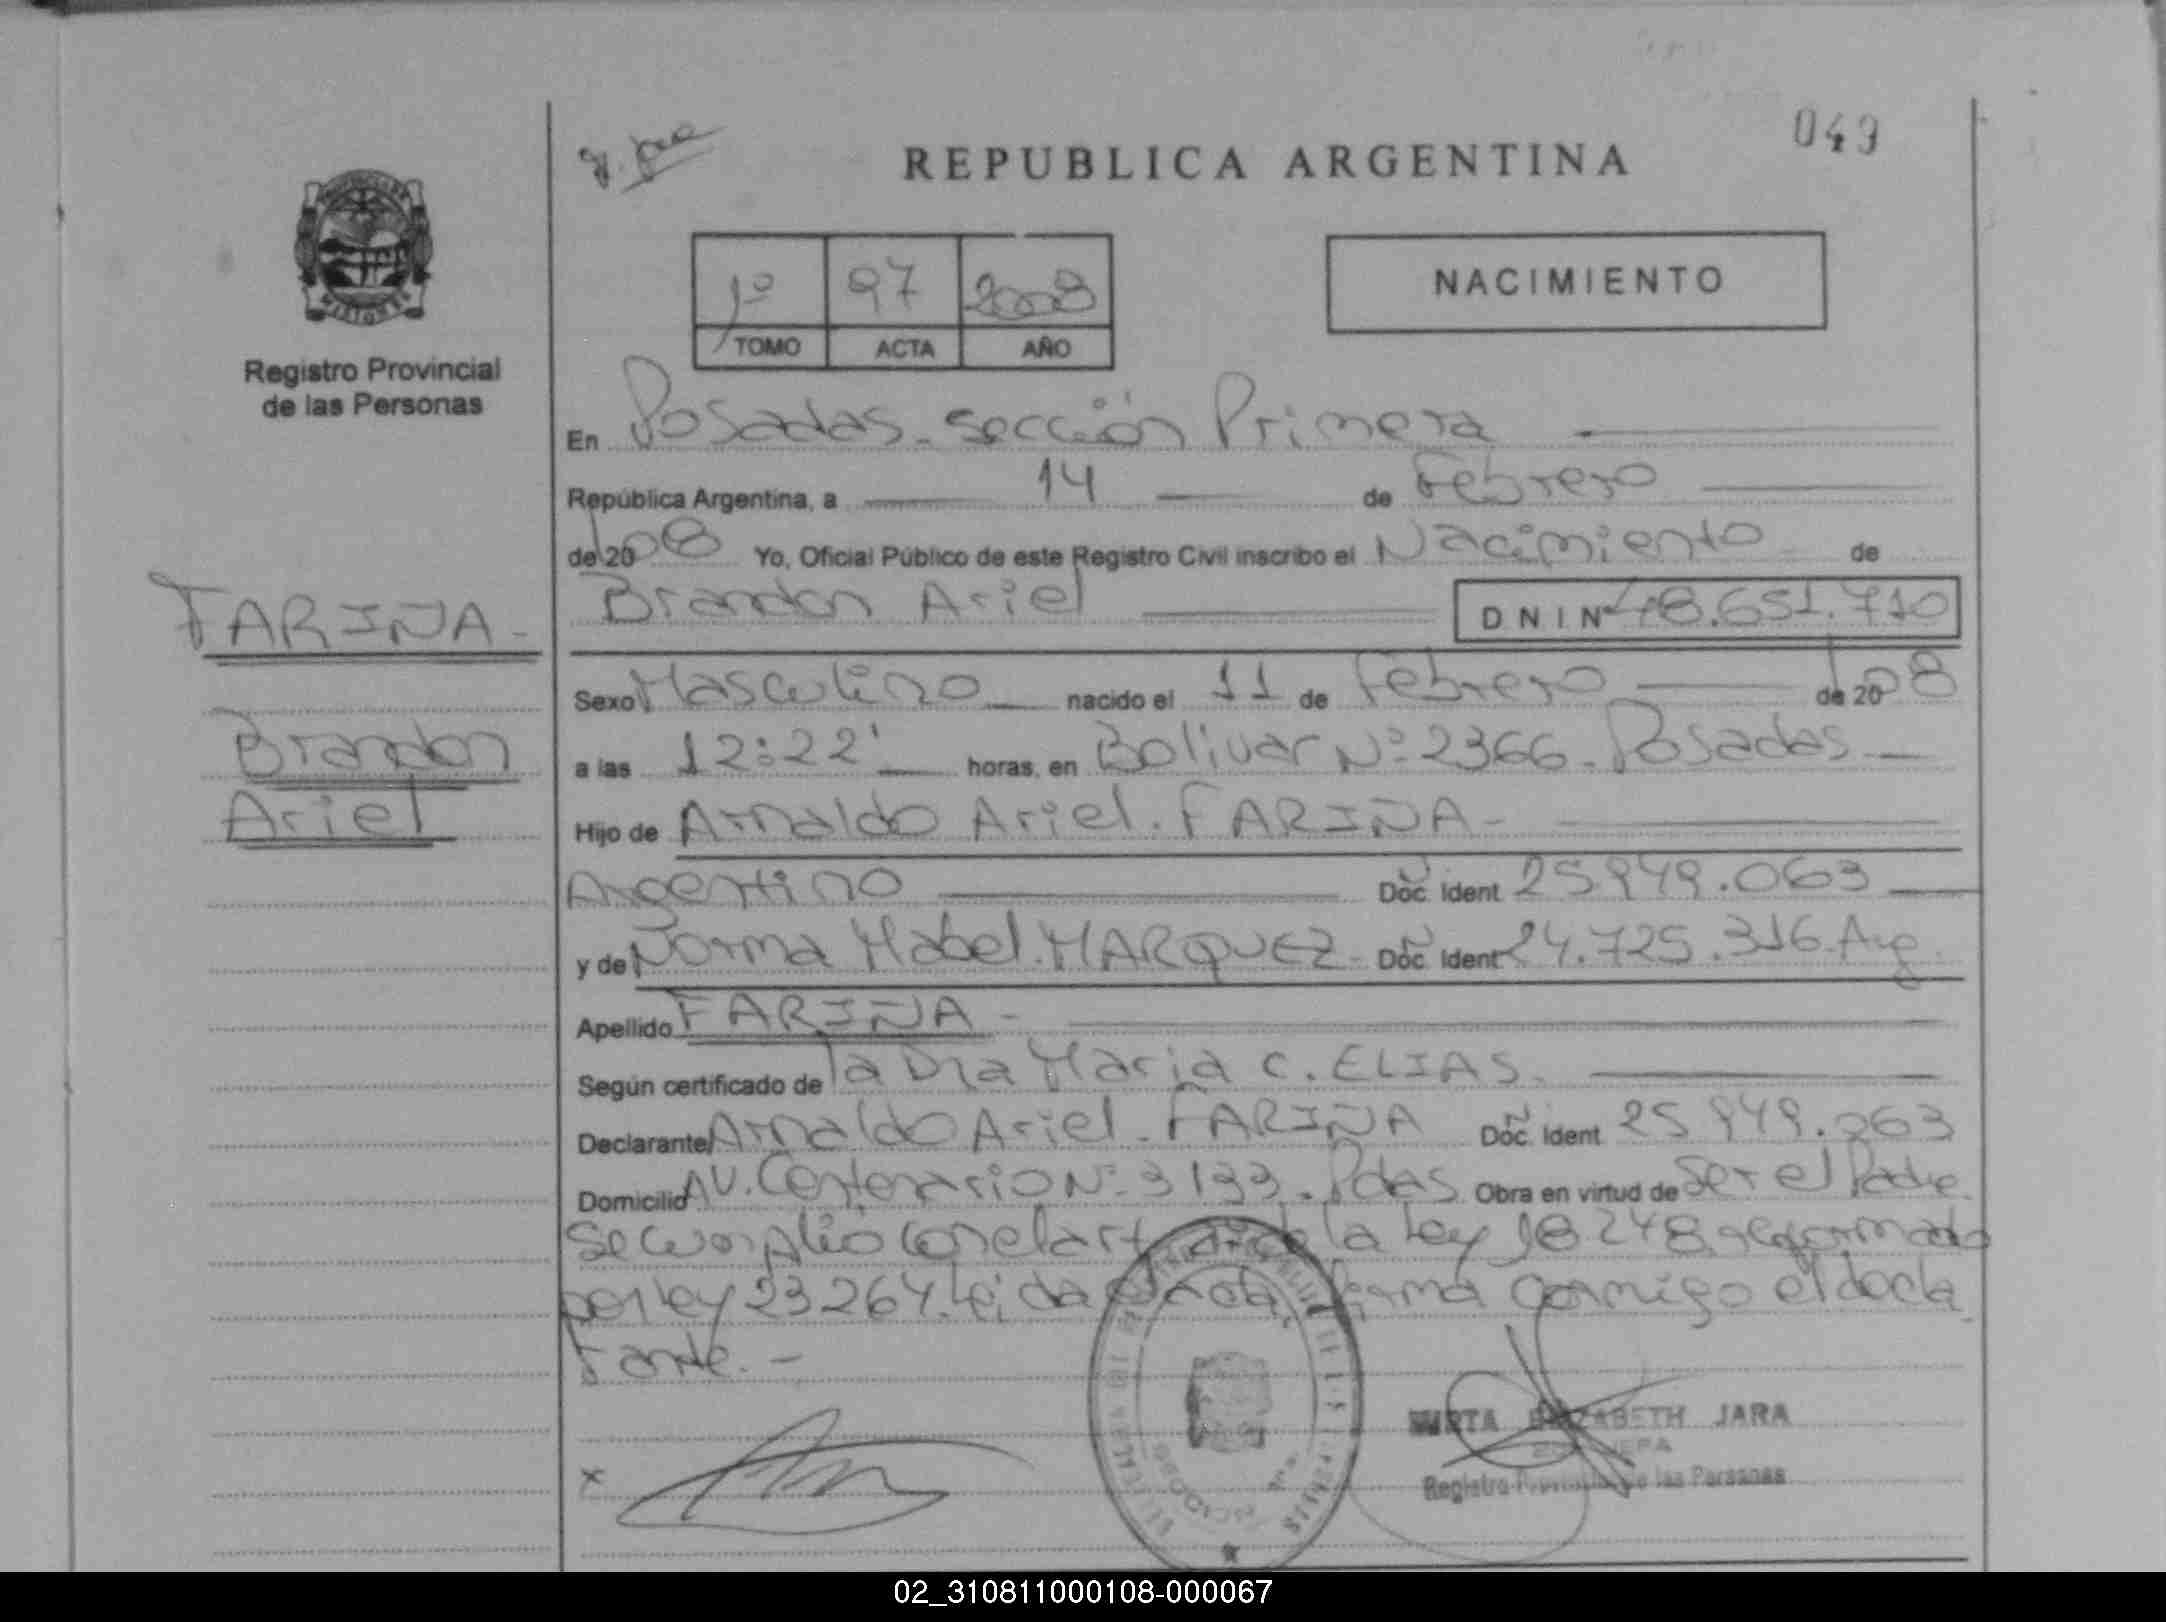 049
REPUBLICA ARGENTINA
NACIMIENTO
1º 97 2008
TOMO ACTA AÑO
Registro Provincial
de las Personas
En Posadas. sección Primera
República Argentina, a 14 de Febrero
de 2008 Yo, Oficial Público de este Registro Civil inscribo el Nacimiento de
Brandon Ariel D N I Nº 48.651.710
FARIÑA-
Brandon
Ariel
Sexo Masculino nacido el 11 de Febrero de 2008
a las 12:22' horas, en Bolivar Nº 2366. Posadas
Hijo de Arnaldo Ariel. FARIÑA-
Argentino Doc. Ident 25.949.063
y de Norma Mabel. MARQUEZ- Doc. Ident 24.725.316 Arg.
Apellido FARIÑA-
Según certificado de la Dra Maria C. ELIAS.
Declarante Arnaldo Ariel. FARIÑA Doc. Ident 25.949.063
Domicilio AV. Centenario Nº 3133. Pdas Obra en virtud de ser el Padre
se cumplió con el art de la Ley 18248 reformado
por ley 23264. Leída el acta, firma conmigo el decla
rante.-
x
MIRTA ELIZABETH JARA
Registro Provincial de las Personas
02_310811000108-000067